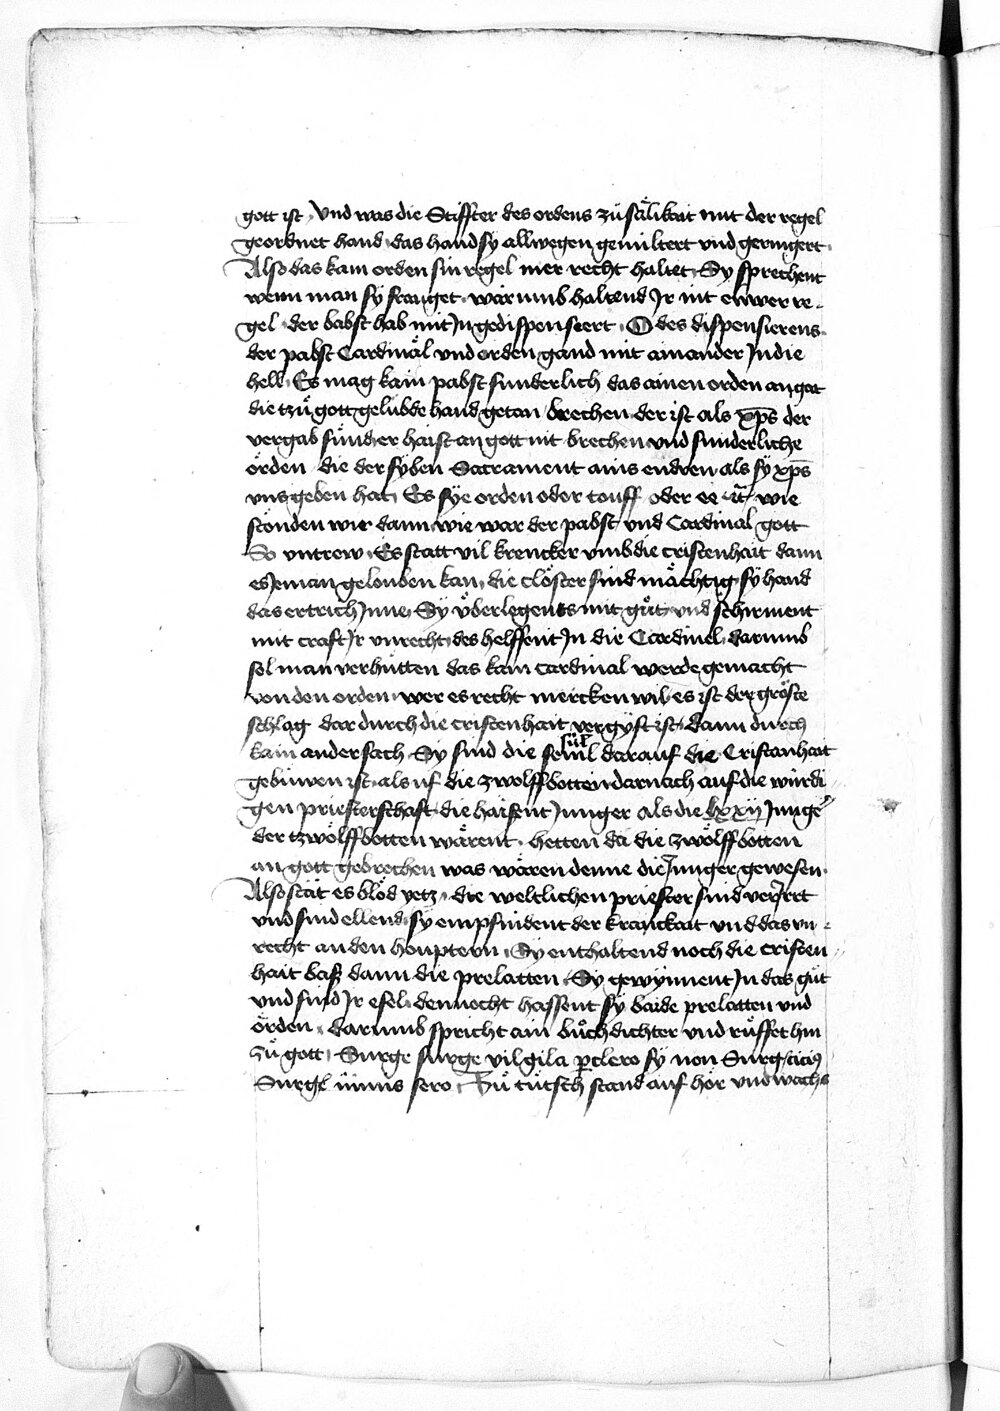 gott ist / Vnd was die Stiffter des ordens zů sälikait mit der regel
geordnet hand das hand sy allwegen gemiltert vnd geringert
Also das kain orden sin regel mer recht haltet Sy sprechent
wenn man sy fraͧget waͧrumb haltend Ir nit ewer re-
gel der babst hab mit In gedispensiert O des dispensierens
der pabst Cardinäl vnd orden gand mit ainander In die
hell Es mag kain pabst sunderlich das ainen orden an gät
die tzů gott gelübde hand getan brechen der ist als xp̄s der
vergab sünd er haist an gott nit brechen vnd sunderliche
örden die der syben Sacrament ains endren als sy xp̄s
vns geben hat Es sye orden oder touff oder ee wie
stönden wir dann wie war der pabst vnd Cardinal gott
So vntrew Es statt vil krencker vmb die cristenhait dann
es Jeman gelouben kan die clöster sind mächtig sy hand
das ertrich Inne Sy überlegents mit gůt vnd schirment
mit craft Ir vnrecht des helffent In die Cardinel darumb
sol man verhütten das kain cardinal werde gemacht
von den orden wer es recht mercken wil es ist der gröste
schlag dar durch die cristenhait vergyft ist dann durch
kain ander sach Sy sind die sewil sül darauf die Cristanhait
gebuwen ist als uf die zwolffbotten darnach auf die würdi
gen priesterschaft die haissent Junger als die lxxij Junger
der tzwölffbotten wärent hetten da die zwölffbotten
an gott gebrechen was wären denne die Junger gewesen
Also stat es blöd yetz die weltlichen priester sind verirrt
vnd sind ellend sy empfindent der kranckait vnd das vn-
recht an den houptern Sy enthaltend noch die cristen
hait bass dann die prelatten Sy gewynnent In das gůt
vnd sind Ir esel dennocht hassent sy baide prelatten vnd
örden darumb spricht ain bůchdichter vnd růffet hin
zů gott Surge surge vilgila p clero sy non Surg citius
Surgl sero Zů tütsch stand auf hör vnd wach